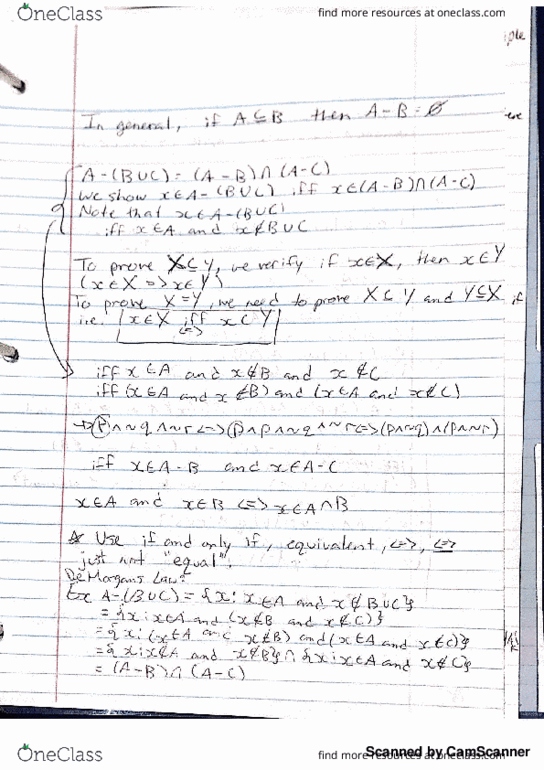 OneClass
find more resources at oneclass.com
In general, if A ⊆ B then A - B = Ø
A - (B ∪ C) = (A - B) ∩ (A - C)
We show x ∈ A - (B ∪ C) iff x ∈ (A - B) ∩ (A - C)
Note that x ∈ A - (B ∪ C)
iff x ∈ A and x ∉ B ∪ C
To prove X ⊆ Y, we verify if x ∈ X, then x ∈ Y
(x ∈ X => x ∈ Y)
To prove X = Y, we need to prove X ⊆ Y and Y ⊆ X if
i.e. x ∈ X iff x ∈ Y
<=>
iff x ∈ A and x ∉ B and x ∉ C
iff (x ∈ A and x ∉ B) and (x ∈ A and x ∉ C)
→ P ∧ ~q ∧ ~r <=> P ∧ P ∧ ~q ∧ ~r <=> (P ∧ ~q) ∧ (P ∧ ~r)
iff x ∈ A - B and x ∈ A - C
x ∈ A and x ∈ B <=> x ∈ A ∩ B
Use if and only if, equivalent, <=>, <=>
just not "equal".
DeMorgans Law:
Ex A - (B ∪ C) = {x : x ∈ A and x ∉ B ∪ C}
= {x : x ∈ A and (x ∉ B and x ∉ C)}
= {x : (x ∈ A and x ∉ B) and (x ∈ A and x ∉ C)}
= {x : x ∈ A and x ∉ B} ∩ {x : x ∈ A and x ∉ C}
= (A - B) ∩ (A - C)
OneClass
find more resources at oneclass.com
Scanned by CamScanner